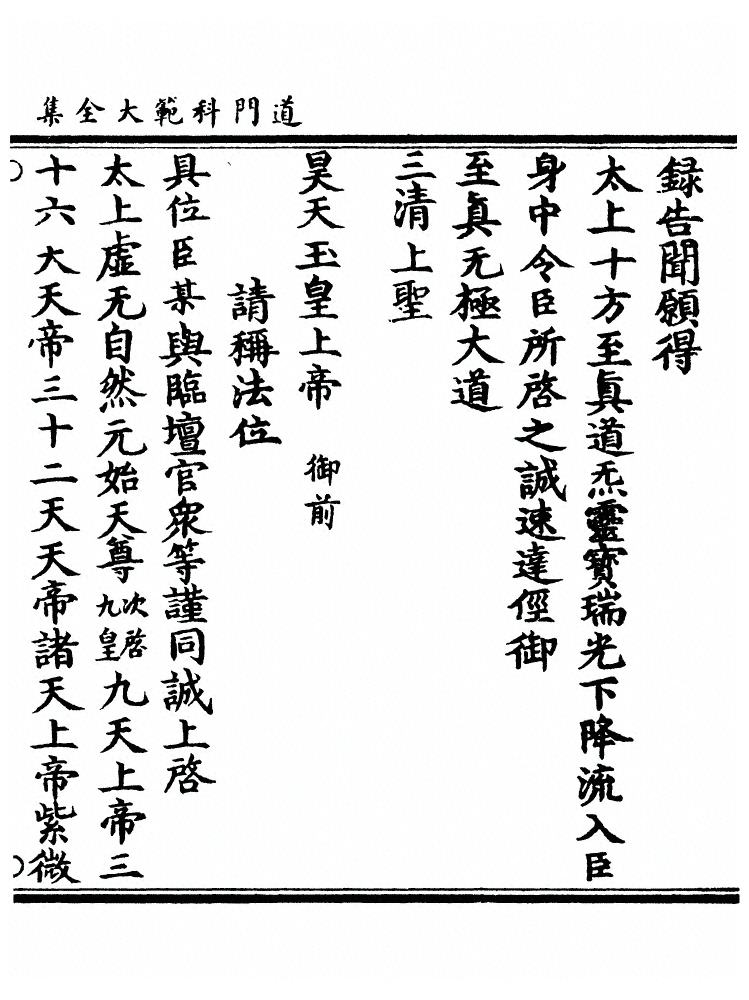 道門科範大全集
錄告聞願得
太上十方至眞道炁靈寳瑞光下降流入臣
身中令臣所啓之誠速達徑御
至眞无極大道
三清上聖
昊天玉皇上帝 御前
請稱法位
具位臣某與臨壇官衆等謹同誠上啓
太上虛无自然元始天尊次啓九皇九天上帝三
十六大天帝三十二天天帝諸天上帝紫微